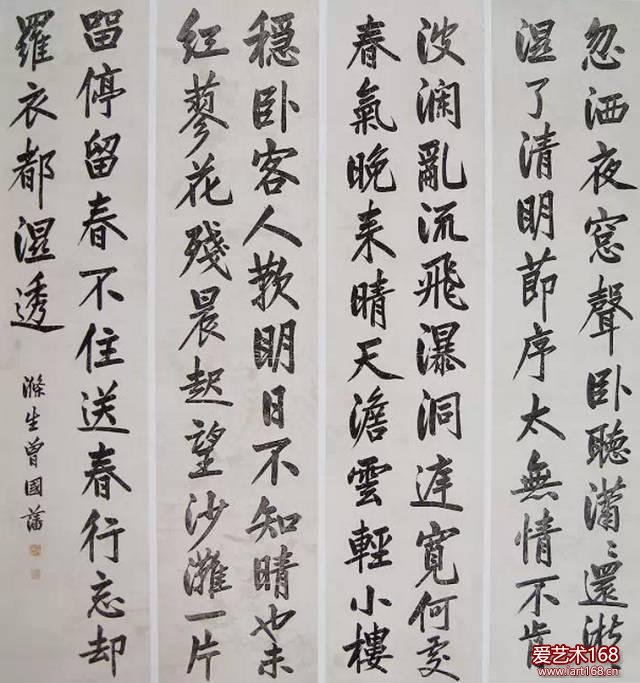 忽洒夜窓聲卧聽瀟〻還淅
湿了清明節序太無情不肯
波澜亂流飛瀑洞寬何處
春氣晚来晴天澹雲輕小樓
穩卧客人歎明日不知晴也未
红蓼花殘晨起望沙灘一片
留停留春不住送春行忘却
羅衣都湿透
滌生曾國藩
爱艺术168
www.iart168.com